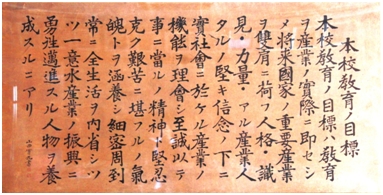 本校教育ノ目標
本校教育ノ目標ハ教育
ヲ産業ノ實際ニ即セシ
メ将来國家ノ重要産業
ヲ雙肩ニ荷フ人格識
見・力量・アル産業人
タルノ堅キ信念ノ下ニ
實社會ニ於ケル産業ノ
機能ヲ理會シ至誠以テ
事ニ當ルノ精神ト堅忍
克ク艱苦ニ堪フルノ氣
魄トヲ涵養シ細密周到
常ニ全生活ヲ内省シツ
ツ一意水産業ノ振興ニ
勇往邁進スル人物ヲ養
成スルニアリ